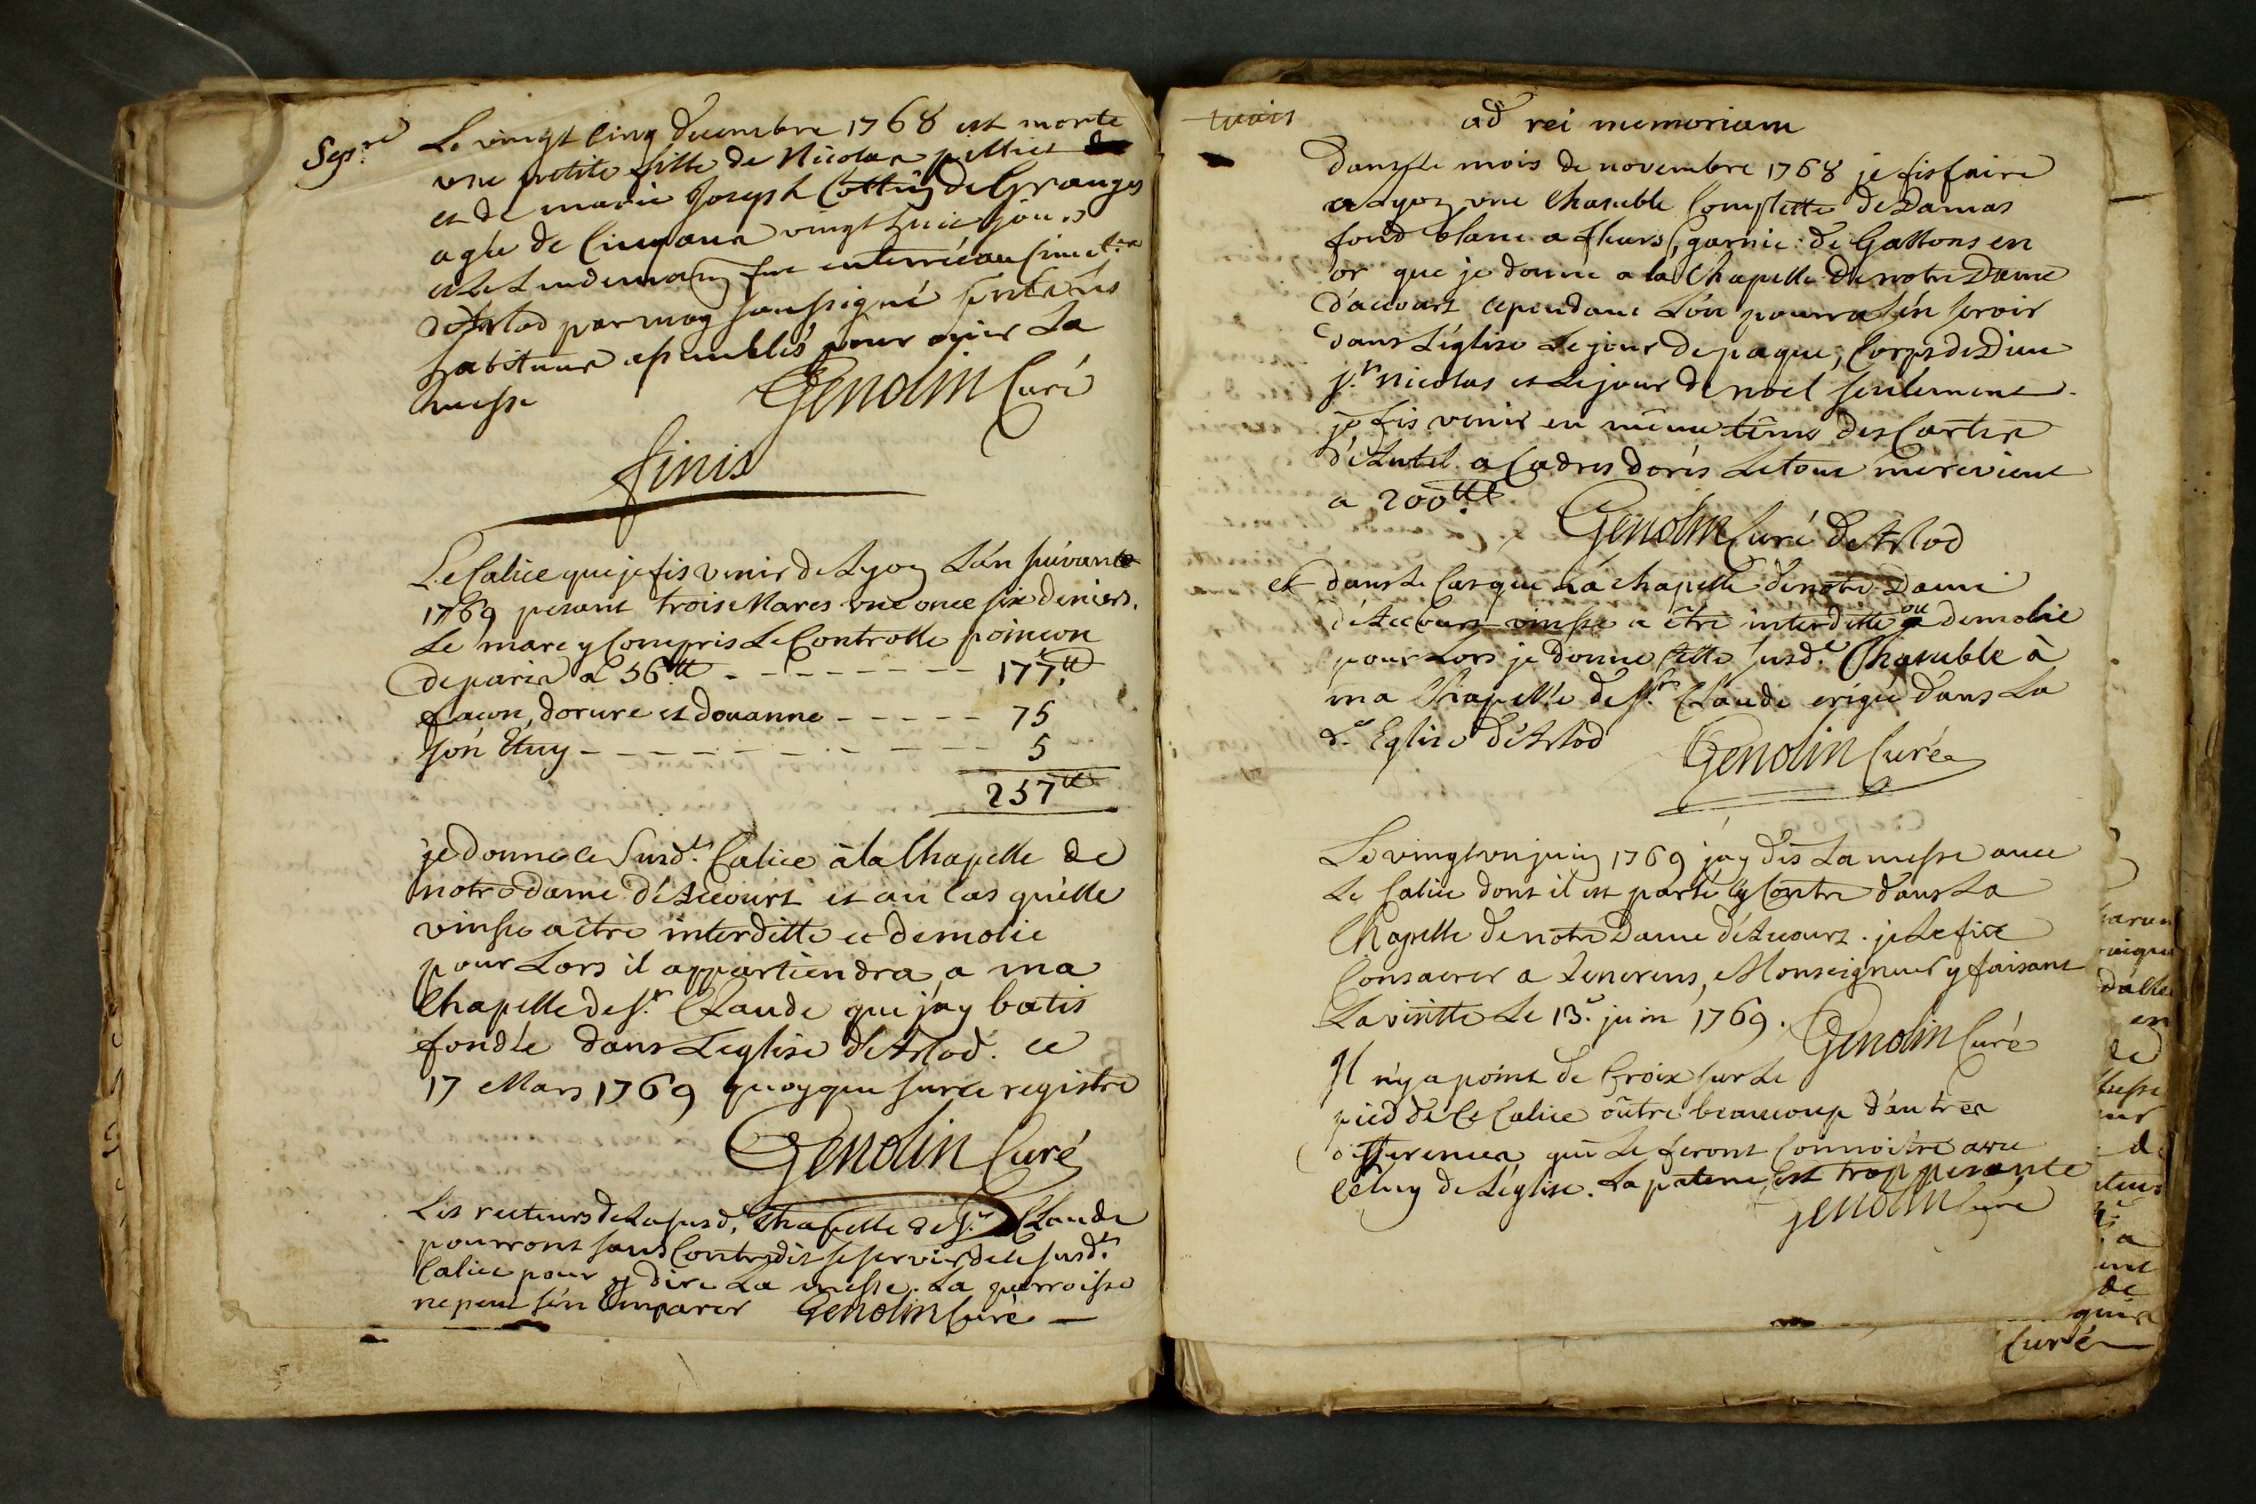 Sep.re
Le vingt cinq decembre 1768 est morte
une petite fille de Nicolas pillies
et de marie Joseph Cottin de Granges
agée de Cinq ans vingt huit jours
et le Lendemain fut enterrée au Cimet.re
d'Arlod par moy soussigné présents
habitans assemblés pour ouir La
messe Genolin Curé
finis
Le Calice que je fis venir de Lyon L'an suivant
1769 pesant trois Marcs une once six deniers.
Le marc y Compris Le Controlle poincon
de paris a 56tt - - - - - - - - 177.tt
facon, dorure et douanne - - - - - 75
son Etuy - - - - - - - - - - - - 5
257tt
je donne ce susd.t Calice à la Chapelle de
notre dame d'Accourt et au Cas qu'elle
vinsse a être interditte et demolie
pour Lors il appartiendra a ma
Chapelle de s.t Claude que j'ay batis
fondée dans L'eglise d'Arlod. ce
17 Mars 1769 quoyque sur ce registre
Genolin Curé
Les recteurs de La susd.e Chapelle de s.t Claude
pourront sans Contredit se servir de le susd.t
Calice pour y dire La messe. La parroisse
ne peut s'en Emparer Genolin Curé
ad rei memoriam
Dans Le mois de novembre 1768 je fis faire
a Lyon une Chasuble Complette de Damas
fond blanc a fleurs, garnie de Gallons en
or que je donne a la Chapelle de notre Dame
d'accourt cependant L'on pourra s'en servir
dans L'église Le jour de paque, Corps de Dieu
s.t Nicolas et Le jour de noel seulement.
je fis venir en même tems des Cartes
d'Autel a Cadres dorés Le tout me revient
a 200tt.
Genolin Curé d'Arlod
et dans Le Cas que La Chapelle de notre Dame
d'Accourt vinsse a être interditte ou demolie
pour Lors je donne Cette susd.e Chasuble à
ma Chapelle de s.t Claude erigée dans La
d.e Eglise d'Arlod Genolin Curé
Le vingt un juin 1769 j'ay dis La messe avec
Le Calice dont il est parlé Cy Contre dans La
Chapelle de notre Dame d'Accourt. je Le fis
Consacrer a , Monseigneur y faisant
La visitte Le 13.e juin 1769. Genolin Curé
Il n'y a point de Croix sur Le
pied de Ce Calice outre beaucoup d'autres
differences qui Le feront Connoitre avec
Celuy de L'église. La patene est trop pesante
Genolin Curé
de
de
Curé